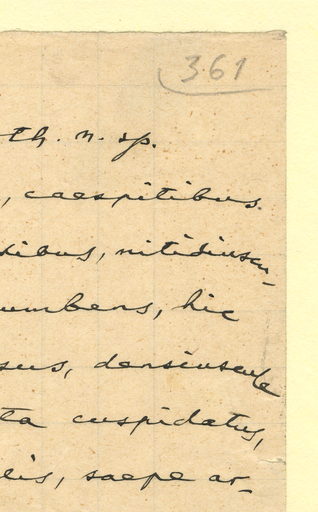 361
th. n. sp.
, caespitibus
sibus, nitidiuscu-
umbens, hic
sus, densiuscule
ta cuspidatus,
lis, saepe ar-